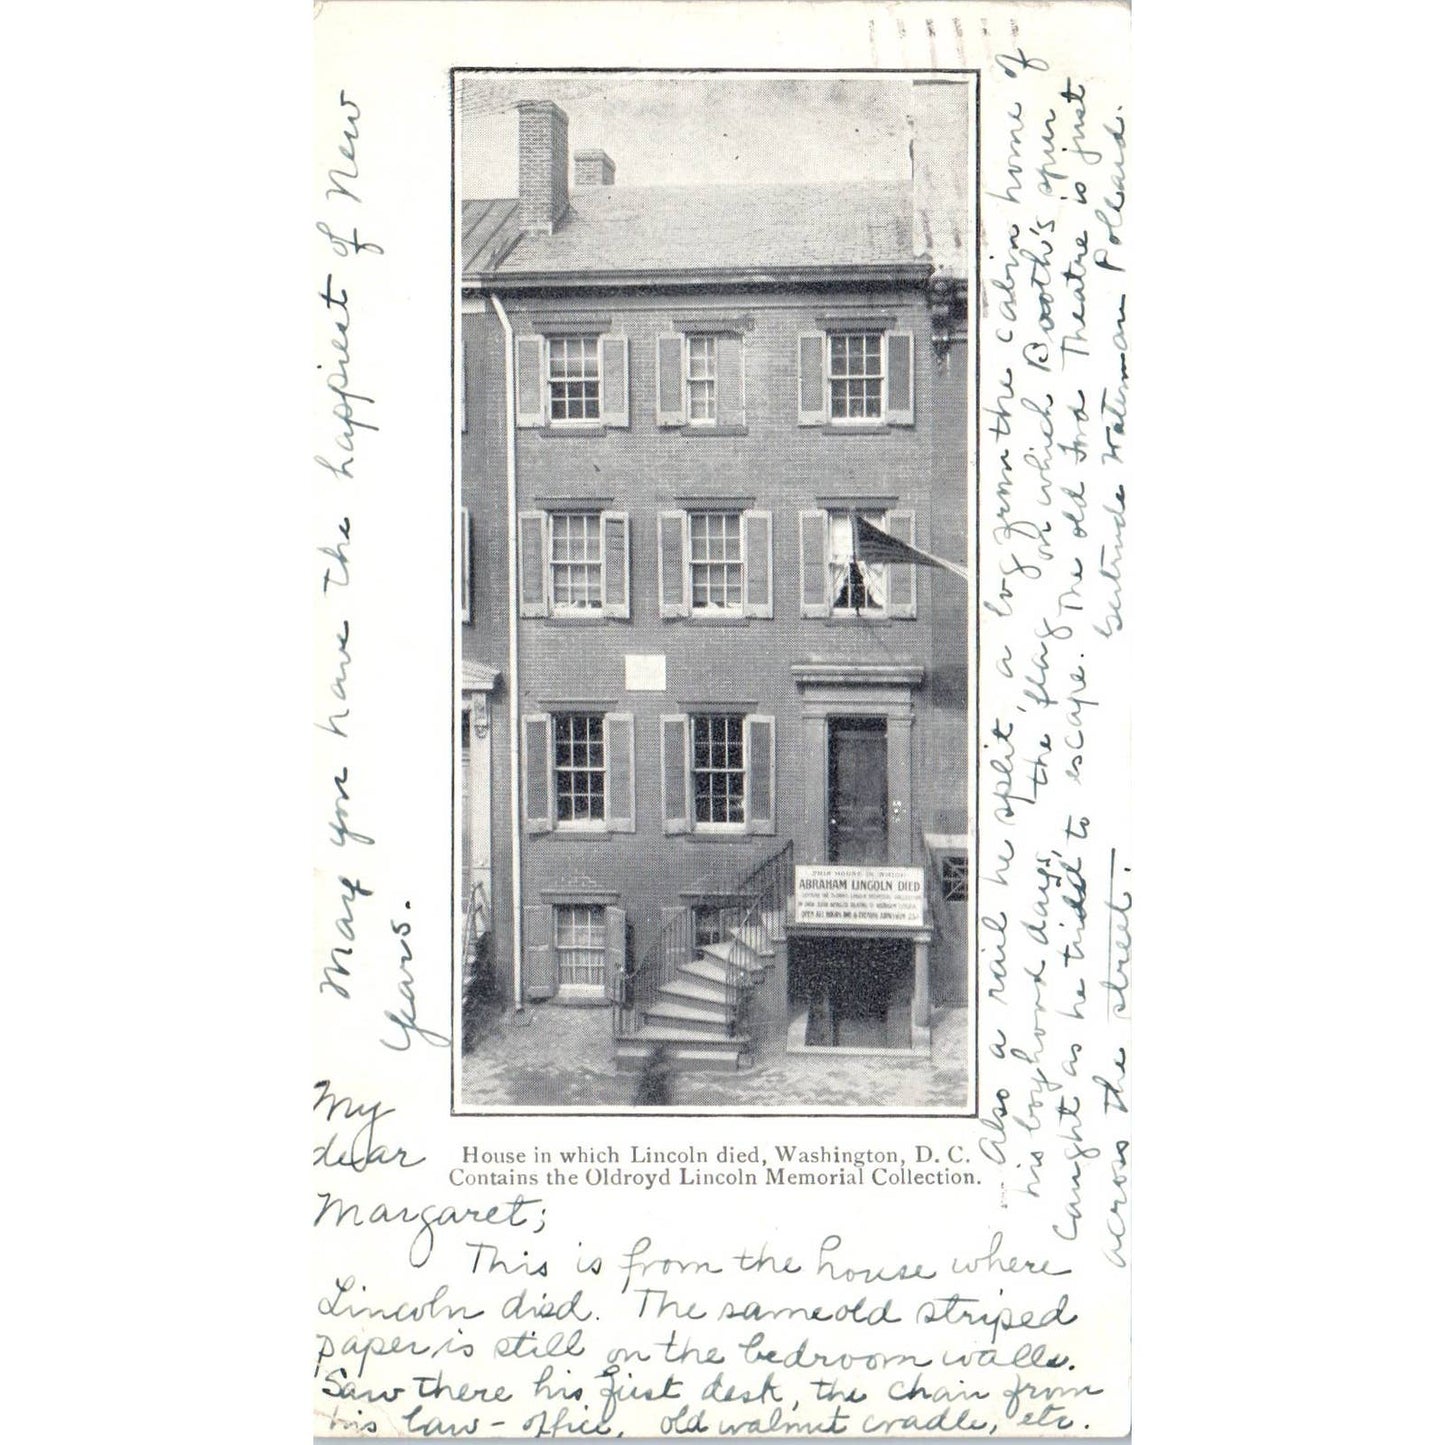 My
dear
Margaret;
This is from the house where
Lincoln died. The same old striped
paper, is still on the bedroom walls.
Saw there his first desk, the chair from
his law-office, old walnut cradle, etc.
Also a rail he split, a log from the cabin home of
his boyhood days, the flag on which Booth's spur
caught as he tried to escape. The old Ford Theatre is just
across the street.
Gertrude Waterman Pollard.
May you have the happiest of New
Years.
ABRAHAM LINCOLN DIED
House in which Lincoln died, Washington, D. C.
Contains the Oldroyd Lincoln Memorial Collection.